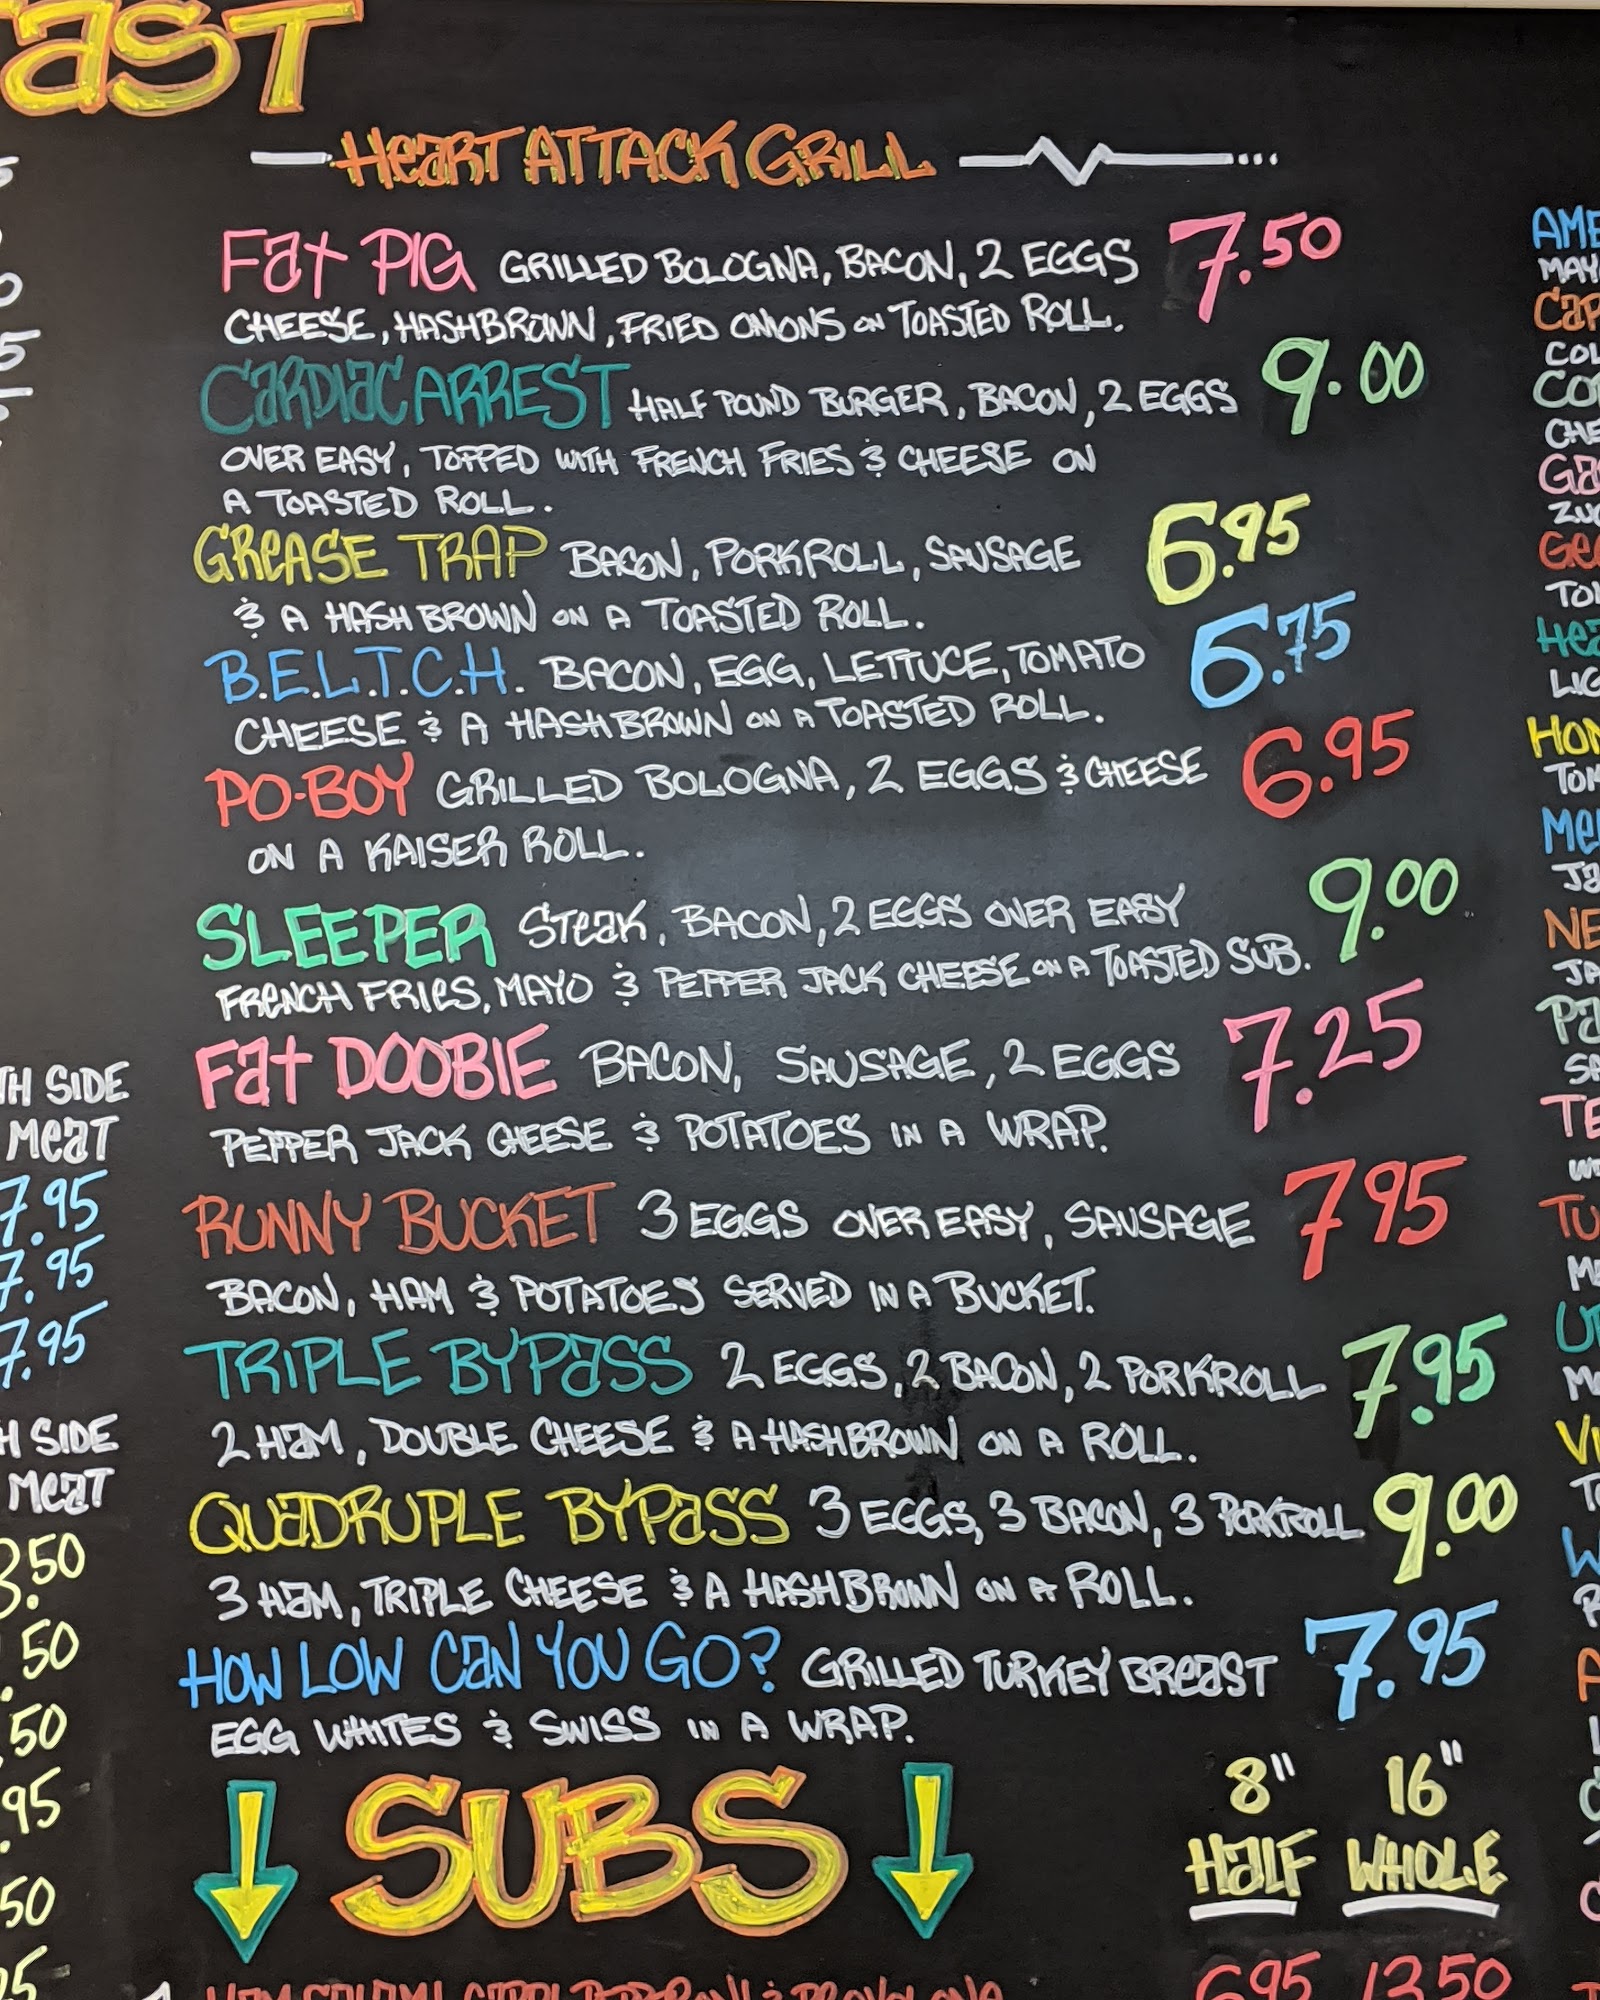 HEART ATTACK GRILL
FAT PIG GRILLED BOLOGNA, BACON, 2 EGGS 7.50
CHEESE, HASHBROWN, FRIED ONIONS ON TOASTED ROLL.
CARDIAC ARREST HALF POUND BURGER, BACON, 2 EGGS 9.00
OVER EASY, TOPPED WITH FRENCH FRIES & CHEESE ON
A TOASTED ROLL.
GREASE TRAP BACON, PORKROLL, SAUSAGE 6.95
& A HASH BROWN ON A TOASTED ROLL.
B.E.L.T.C.H. BACON, EGG, LETTUCE, TOMATO 6.75
CHEESE & A HASHBROWN ON A TOASTED ROLL.
PO-BOY GRILLED BOLOGNA, 2 EGGS & CHEESE 6.95
ON A KAISER ROLL.
SLEEPER STEAK, BACON, 2 EGGS OVER EASY 9.00
FRENCH FRIES, MAYO & PEPPER JACK CHEESE ON A TOASTED SUB.
FAT DOOBIE BACON, SAUSAGE, 2 EGGS 7.25
PEPPER JACK CHEESE & POTATOES IN A WRAP.
RUNNY BUCKET 3 EGGS OVER EASY, SAUSAGE 7.95
BACON, HAM & POTATOES SERVED IN A BUCKET.
TRIPLE BYPASS 2 EGGS, 2 BACON, 2 PORKROLL 7.95
2 HAM, DOUBLE CHEESE & A HASHBROWN ON A ROLL.
QUADRUPLE BYPASS 3 EGGS, 3 BACON, 3 PORKROLL 9.00
3 HAM, TRIPLE CHEESE & A HASHBROWN ON A ROLL.
HOW LOW CAN YOU GO? GRILLED TURKEY BREAST 7.95
EGG WHITES & SWISS IN A WRAP.
SUBS 8" 16"
HALF WHOLE
6.95 13.50
SIDE
MEAT
7.95
7.95
7.95
SIDE
MEAT